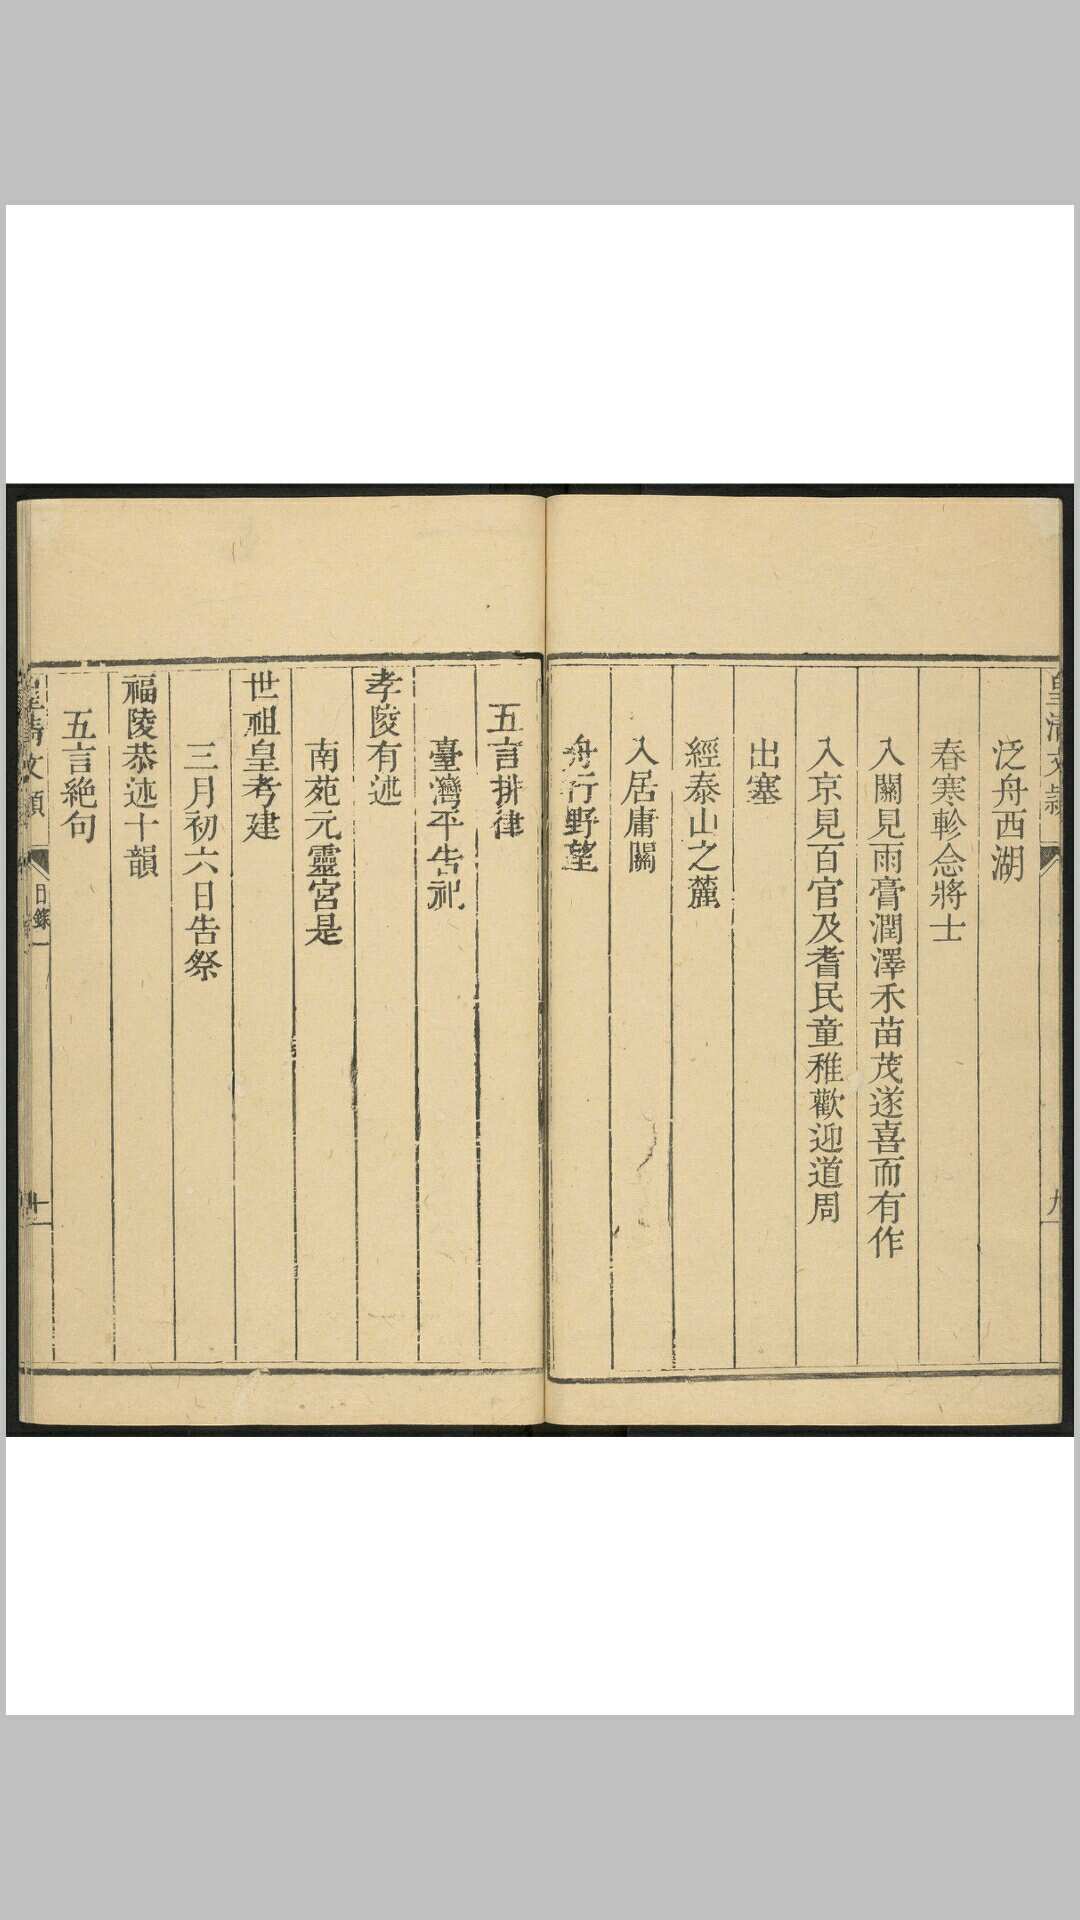 皇清文類
九
泛舟西湖
春寒軫念將士
入關見雨膏潤澤禾苗茂遂喜而有作
入京見百官及耆民童稚歡迎道周
出塞
經泰山之麓
入居庸關
舟行野望
五言排律
臺灣平告祀
孝陵有述
南苑元靈宮是
世祖皇考建
三月初六日告祭
福陵恭述十韻
五言絶句
皇清文類
目錄一
十